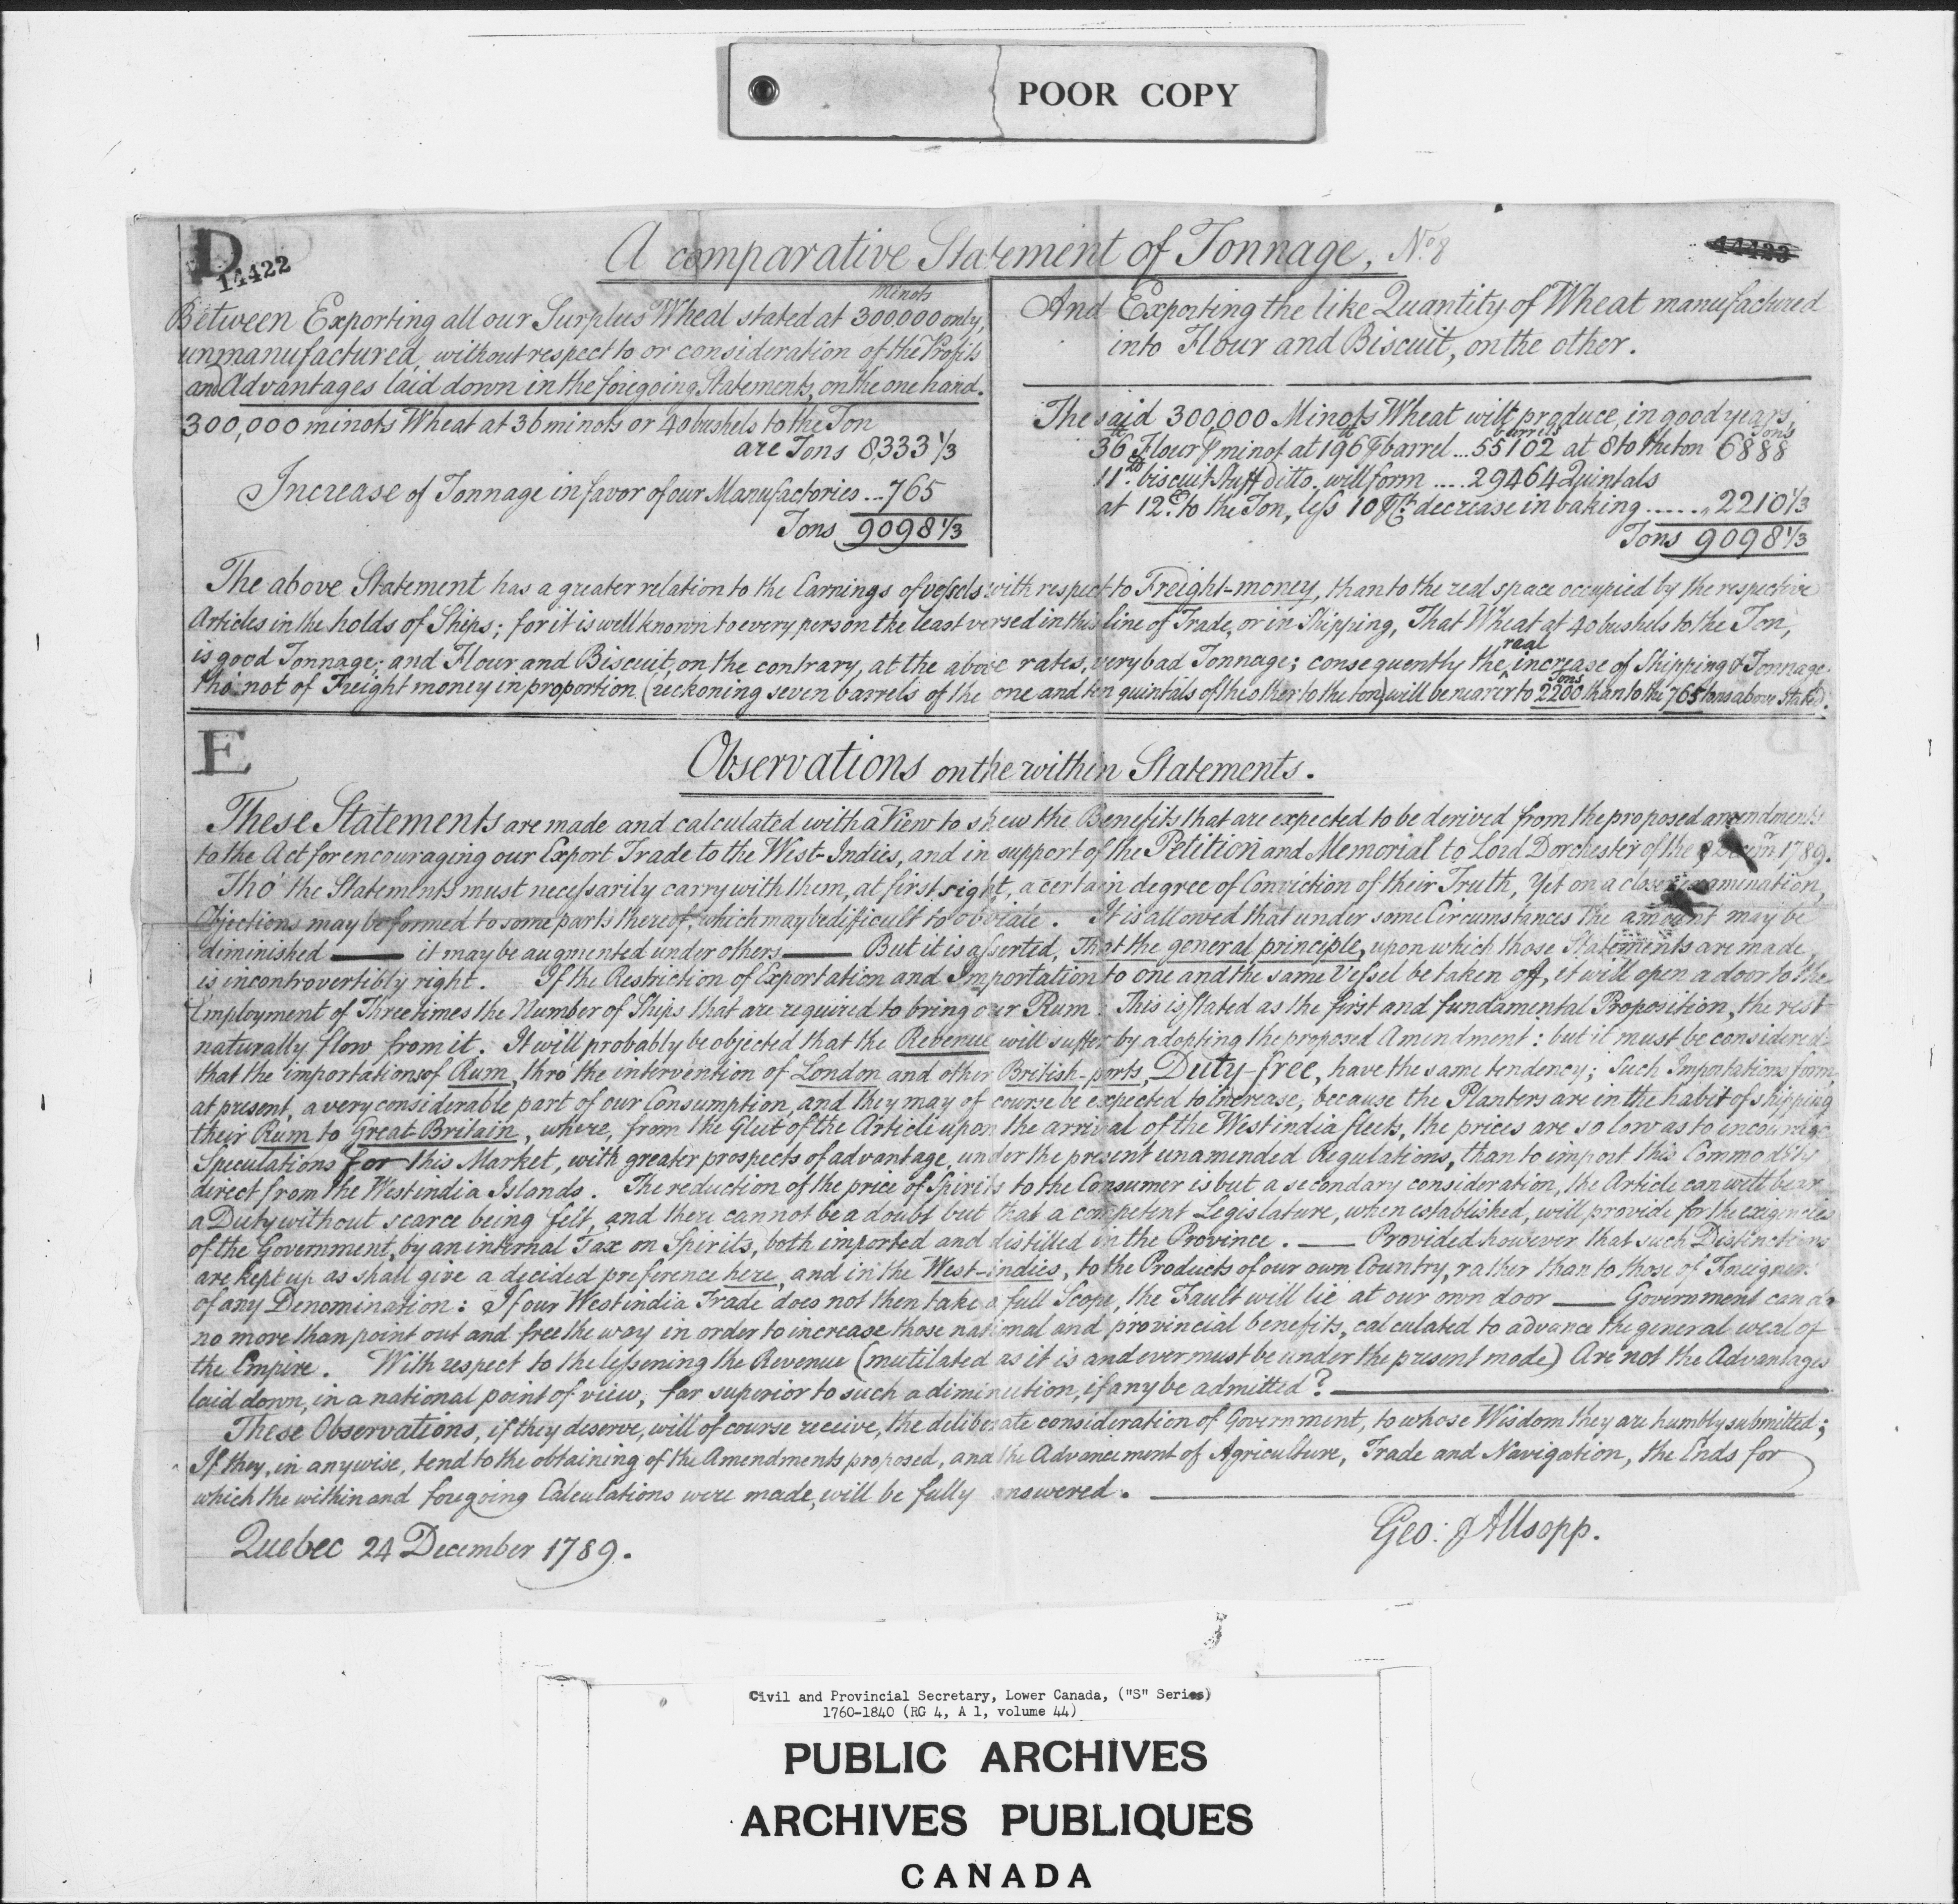 POOR COPY
D
14422
A comparative Statement of Tonnage, No. 8
14423
minots
Between Exporting all our Surplus Wheat stated at 300.000 only,
unmanufactured, without respect to or consideration of the Profits
and Advantages laid down in the foregoing Statements, on the one hand.
300,000 minots Wheat at 36 minots or 40 bushels to the Ton
are Tons 8,333 1/3
Increase of Tonnage in favor of our Manufactories ... 765
Tons 9098 1/3
And Exporting the like Quantity of Wheat manufactured
into Flour and Biscuit, on the other.
The said 300,000 Minots Wheat will produce, in good years,
barrels Tons
36 lb Flour ⅌ minot at 196 lb ⅌ barrel ... 55102 at 8 to the ton 6888
11 lb biscuit Stuff ditto. will form .... 29464 Quintals
at 12 to the Ton, less 10 ⅌ Ct. decrease in baking ...... 2210 1/3
Tons 9098 1/3
The above Statement has a greater relation to the Earnings of vessels with respect to Freight-money, than to the real space occupied by the respective
Articles in the holds of Ships; for it is well known to every person the least versed in this line of Trade, or in Shipping, That Wheat at 40 bushels to the Ton,
real
is good Tonnage; and Flour and Biscuit, on the contrary, at the above rates, very bad Tonnage; consequently the increase of Shipping & Tonnage
Tons
tho' not of Freight money in proportion (reckoning seven barrels of the one and ten quintals of the other to the ton) will be nearer to 2200 than to the 765 tons above stated.
E
Observations on the within Statements.
These Statements are made and calculated with a View to shew the Benefits that are expected to be derived from the proposed amendments
to the Act for encouraging our Export Trade to the West-Indies, and in support of the Petition and Memorial to Lord Dorchester of the 1789.
Tho' the Statements must necessarily carry with them, at first sight, a certain degree of Conviction of their Truth, Yet on a closer examination,
Objections may be formed to some parts thereof, which may be difficult to obviate. It is allowed that under some Circumstances the amount may be
diminished — it may be augmented under others — But it is asserted, That the general principle, upon which those Statements are made,
is incontrovertibly right. If the Restriction of Exportation and Importation to one and the same Vessel be taken off, it will open a door to the
Employment of Three times the Number of Ships that are required to bring our Rum. This is stated as the first and fundamental Proposition, the rest
naturally flow from it. It will probably be objected that the Revenue will suffer by adopting the proposed Amendment: but it must be considered
that the importations of Rum, thro' the intervention of London and other British-ports, Duty-free, have the same tendency; Such Importations form
at present, a very considerable part of our Consumption, and they may of course be expected to increase, because the Planters are in the habit of shipping
their Rum to Great-Britain, where, from the Glut of the Article upon the arrival of the West india fleets, the prices are so low as to encourage
Speculations for this Market, with greater prospects of advantage, under the present unamended Regulations, than to import this Commodity
direct from the West india Islands. The reduction of the price of Spirits to the Consumer is but a secondary consideration, the Article can well bear
a Duty without scarce being felt, and there cannot be a doubt but that a competent Legislature, when established, will provide for the exigencies
of the Government, by an internal Tax on Spirits, both imported and distilled in the Province. — Provided however that such Distinctions
are kept up as shall give a decided preference here, and in the West-indies, to the Products of our own Country, rather than to those of Foreigners
of any Denomination: If our West india Trade does not then take a full Scope, the Fault will lie at our own door — Government can do
no more than point out and free the way in order to increase those national and provincial benefits, calculated to advance the general weal of
the Empire. With respect to the lessening the Revenue (mutilated as it is and ever must be under the present mode) Are not the Advantages
laid down, in a national point of view, far superior to such a diminution, if any be admitted? —
These Observations, if they deserve, will of course receive, the deliberate consideration of Government, to whose Wisdom they are humbly submitted;
If they, in anywise, tend to the obtaining of the Amendments proposed, and the Advancement of Agriculture, Trade and Navigation, the Ends for
which the within and foregoing Calculations were made, will be fully answered. —
Geo: Allsopp.
Quebec 24 December 1789.
Civil and Provincial Secretary, Lower Canada, ("S" Series)
1760-1840 (RG 4, A 1, volume 44)
PUBLIC ARCHIVES
ARCHIVES PUBLIQUES
CANADA